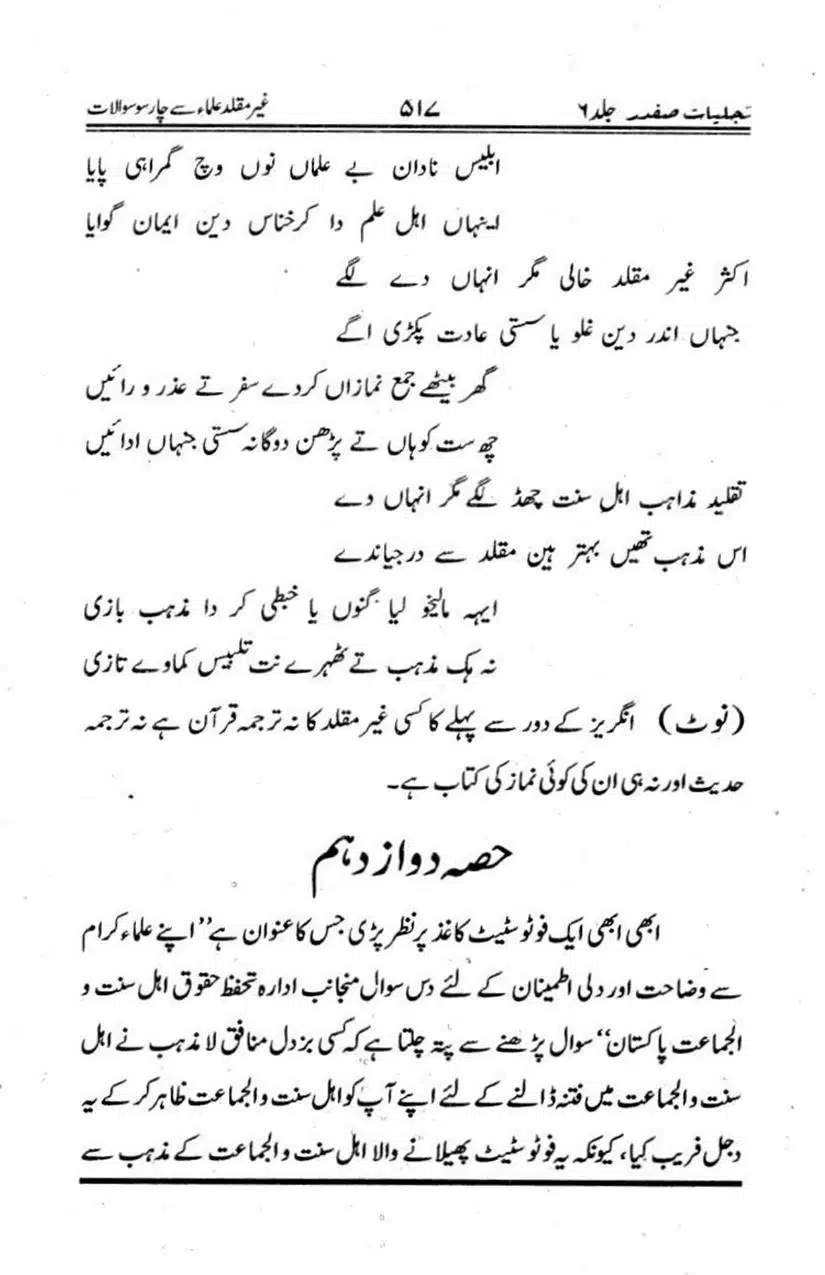 تجلیات صفدر جلد ۶ ۵۱۷ غیر مقلد علماء سے چار سو سوالات
ابلیس نادان بے علماں نوں وچ گمراہی پایا
اینہاں اہل علم دا کرخناس دین ایمان گوایا
اکثر غیر مقلد خالی مگر انہاں دے لگے
جنہاں اندر دین غلو یا سستی عادت پکڑی اگے
گھر بیٹھے جمع نمازاں کردے سفر تے عذر و رائیں
چھ ست کوہاں تے پڑھن دوگانہ سستی جنہاں ادائیں
تقلید مذاہب اہل سنت چھڈ لگے مگر انہاں دے
اس مذہب تھیں بہتر ہین مقلد سے درجیاندے
ایہہ مالیخو لیا گنوں یا خبطی کر دا مذہب بازی
نہ ہک مذہب تے ٹھہرے نت تلبیس کماوے تازی
(نوٹ) انگریز کے دور سے پہلے کا کسی غیر مقلد کا نہ ترجمہ قرآن ہے نہ ترجمہ
حدیث اور نہ ہی ان کی کوئی نماز کی کتاب ہے۔
حصہ دوازدہم
ابھی ابھی ایک فوٹو سٹیٹ کاغذ پر نظر پڑی جس کا عنوان ہے ’’اپنے علماء کرام
سے وضاحت اور دلی اطمینان کے لئے دس سوال منجانب ادارہ تحفظ حقوق اہل سنت و
الجماعت پاکستان‘‘ سوال پڑھنے سے پتہ چلتا ہے کہ کسی بزدل منافق لا مذہب نے اہل
سنت والجماعت میں فتنہ ڈالنے کے لئے اپنے آپ کو اہل سنت والجماعت ظاہر کر کے یہ
دجل فریب کیا، کیونکہ یہ فوٹو سٹیٹ پھیلانے والا اہل سنت والجماعت کے مذہب سے